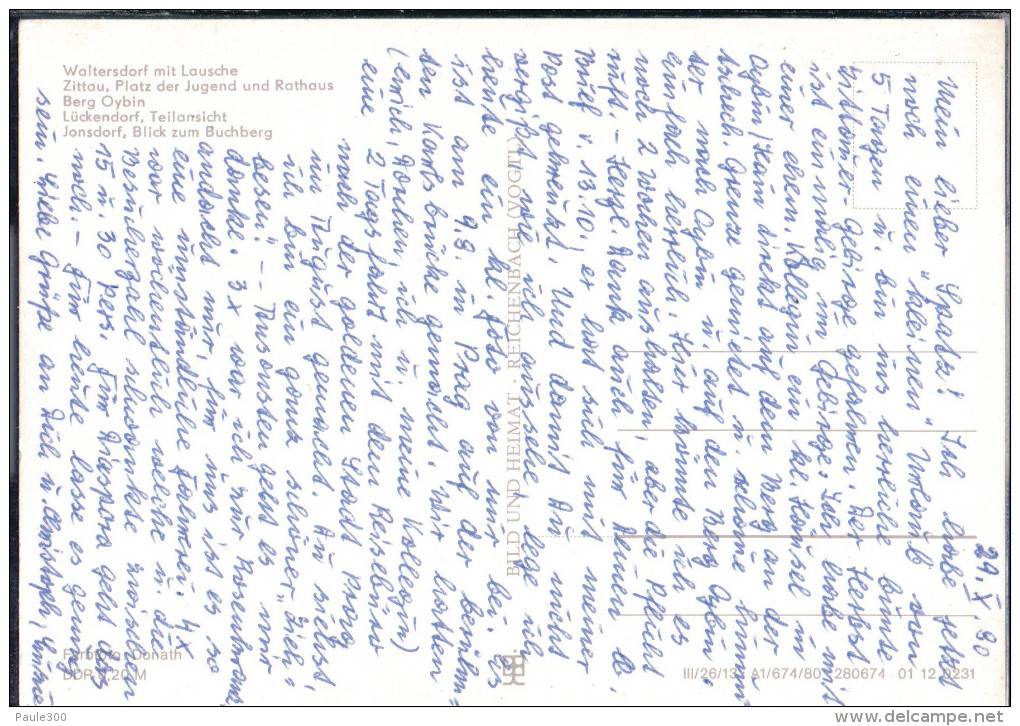 Waltersdorf mit Lausche
Zittau, Platz der Jugend und Rathaus
Berg Oybin
Lückendorf, Teilansicht
Jonsdorf, Blick zum Buchberg
29. X. 80
Mein lieber Spatz! Ich habe jetzt
noch einen "kleinen" Urlaub von
5 Tagen u. bin ins herrliche bunte
Zittauer-Gebirge gefahren. Der Herbst
ist einmalig im Gebirge. Ich wohne mit
einer ehem. Kollegin ein kl. Häusel in
Oybin (kann direkt auf den Berg an der
tschech. Grenze gemietet u. komme
der nach Oybin u. auf den Berg Oybin.
einfach herrlich. Hier könnte ich es
noch 2 Wochen aushalten, aber die Pflicht
ruft. - Herzl. Dank auch für Deinen lb.
Brief v. 13.10., er hat sich mit meiner
Post gekreuzt. Und damit Du nicht
vergißt wie ich aussehe, lege ich
heute ein kl. Foto von mir bei. Es
ist am 9.8. in Prag auf der berühm-
ten Karlsbrücke gemacht. Wir hatten
(Erich, ich u. meine Kollegin)
eine 2 Tagesfahrt mit dem Reisebüro
nach der goldenen Stadt Prag
im August gemacht. Du siehst,
ich bin ein ganz schöner "Dick-
besen". - Ansonsten geht es mir
danke. 3x war ich zur
andacht nur für uns ist es so
eine umständliche Fahrerei. 4x
war wöchentlich welche u. die
Besucherzahl schwankte zwischen
15 u. 30 Pers. Für Diaspora geht das
noch. - Für heute lasse es genug
sein. Liebe Grüße an Dich u. Christoph,
Farbfoto: Donath
DDR 0,20 M
BILD UND HEIMAT · REICHENBACH (VOGTL)
III/26/13 A1/674/80 280674 01 12 0231
Paule300